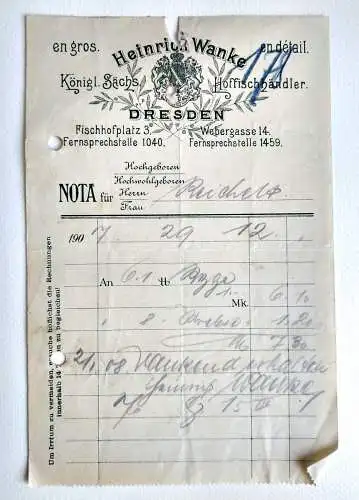 en gros.
Heinrich Wanke
en détail.
Königl. Sächs.
Hoffischhändler.
DRESDEN
Fischhofplatz 3.
Webergasse 14.
Fernsprechstelle 1040.
Fernsprechstelle 1459.
Hochgeboren
Hochwohlgeboren
NOTA für Herrn
Frau
1907. 29 12.
An 6.1 ℔
Mk. 6.10
8 1.20
M 7.30
21. 08 dankend erhalten
Wanke
Um Irrtum zu vermeiden, ersuche höflichst die Rechnungen
innerhalb 14 zu begleichen!